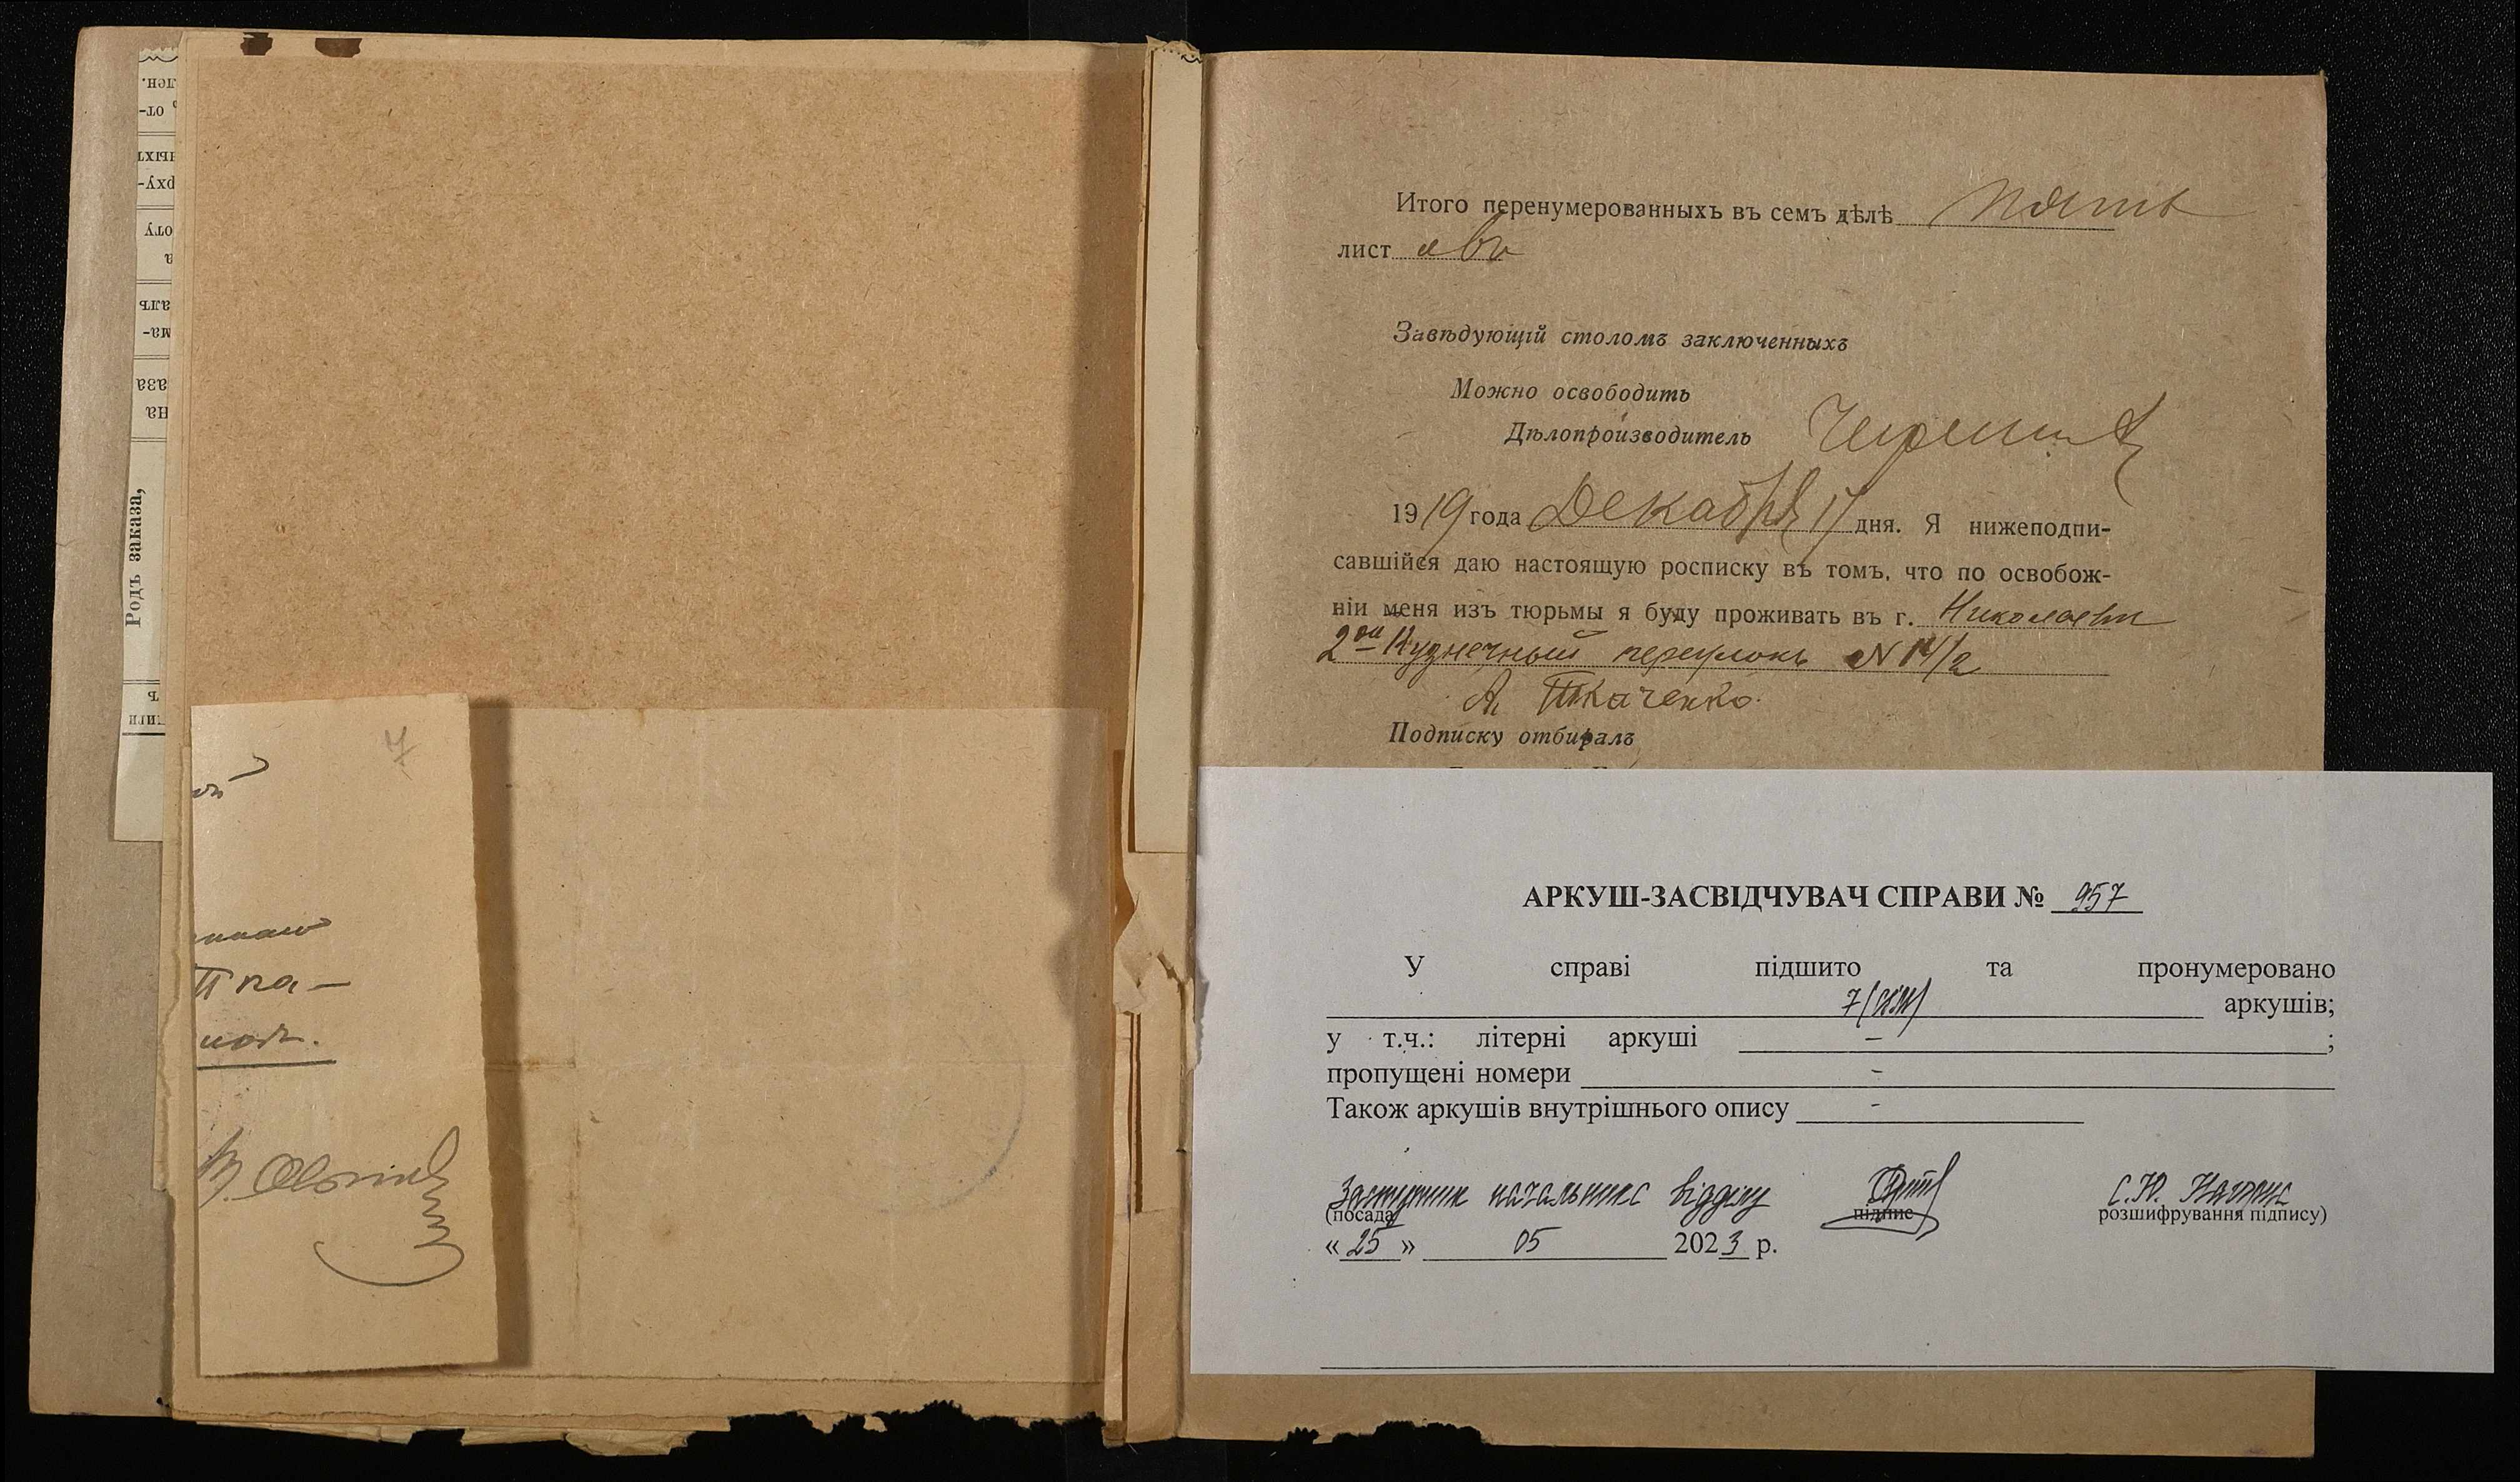 Родъ заказа,
7
II па-
Итого перенумерованныхъ въ семъ дѣлѣ пять
лист овъ
Завѣдующій столомъ заключенныхъ
Можно освободить
Дѣлопроизводитель
1919 года Декабря 17 дня. Я нижеподпи-
савшійся даю настоящую росписку въ томъ, что по освобож-
ніи меня изъ тюрьмы я буду проживать въ г. Николаевѣ
2ой Кузнечный переулокъ N 14/2
А. Ткаченко.
Подписку отбиралъ
АРКУШ-ЗАСВІДЧУВАЧ СПРАВИ № 957
У справі підшито та пронумеровано
7 (сім) аркушів;
у т.ч.: літерні аркуші - ;
пропущені номери -
Також аркушів внутрішнього опису -
Заступник начальника відділу
(посада) підпис розшифрування підпису)
« 25 » 05 2023 р.